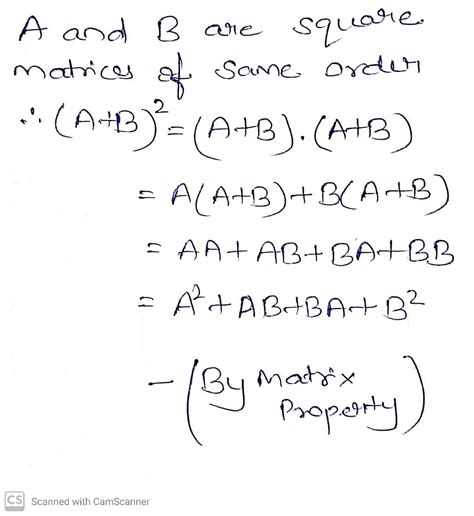 A and B are square
matrices of same order
∴ (A+B)² = (A+B).(A+B)
= A(A+B)+B(A+B)
= AA+AB+BA+BB
= A²+AB+BA+B²
- (By Matrix
Property)
CS Scanned with CamScanner